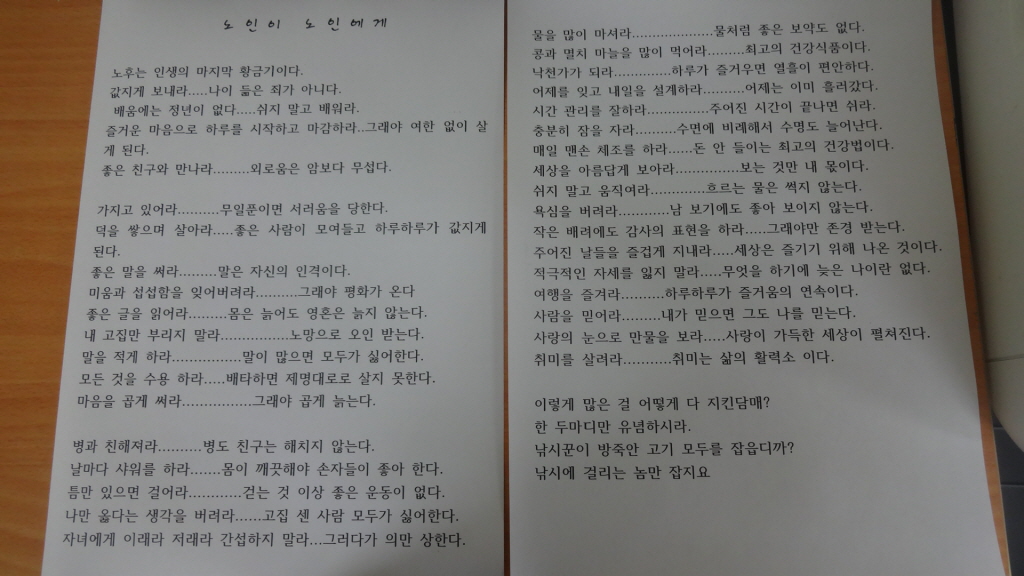 노인이 노인에게
노후는 인생의 마지막 황금기이다.
값지게 보내라.....나이 듦은 죄가 아니다.
배움에는 정년이 없다....쉬지 말고 배워라.
즐거운 마음으로 하루를 시작하고 마감하라..그래야 여한 없이 살
게 된다.
좋은 친구와 만나라.........외로움은 암보다 무섭다.
가지고 있어라..........무일푼이면 서러움을 당한다.
덕을 쌓으며 살아라.....좋은 사람이 모여들고 하루하루가 값지게
된다.
좋은 말을 써라.........말은 자신의 인격이다.
미움과 섭섭함을 잊어버려라..........그래야 평화가 온다
좋은 글을 읽어라.........몸은 늙어도 영혼은 늙지 않는다.
내 고집만 부리지 말라................노망으로 오인 받는다.
말을 적게 하라................말이 많으면 모두가 싫어한다.
모든 것을 수용 하라.....배타하면 제명대로로 살지 못한다.
마음을 곱게 써라................그래야 곱게 늙는다.
병과 친해져라..........병도 친구는 해치지 않는다.
날마다 샤워를 하라.......몸이 깨끗해야 손자들이 좋아 한다.
틈만 있으면 걸어라............걷는 것 이상 좋은 운동이 없다.
나만 옳다는 생각을 버려라......고집 센 사람 모두가 싫어한다.
자녀에게 이래라 저래라 간섭하지 말라...그러다가 의만 상한다.
물을 많이 마셔라....................물처럼 좋은 보약도 없다.
콩과 멸치 마늘을 많이 먹어라.........최고의 건강식품이다.
낙천가가 되라..............하루가 즐거우면 열흘이 편안하다.
어제를 잊고 내일을 설계하라..........어제는 이미 흘러갔다.
시간 관리를 잘하라...............주어진 시간이 끝나면 쉬라.
충분히 잠을 자라..........수면에 비례해서 수명도 늘어난다.
매일 맨손 체조를 하라......돈 안 들이는 최고의 건강법이다.
세상을 아름답게 보아라................보는 것만 내 몫이다.
쉬지 말고 움직여라...............흐르는 물은 썩지 않는다.
욕심을 버려라............남 보기에도 좋아 보이지 않는다.
작은 배려에도 감사의 표현을 하라.....그래야만 존경 받는다.
주어진 날들을 즐겁게 지내라....세상은 즐기기 위해 나온 것이다.
적극적인 자세를 잃지 말라.....무엇을 하기에 늦은 나이란 없다.
여행을 즐겨라..........하루하루가 즐거움의 연속이다
사람을 믿어라..........내가 믿으면 그도 나를 믿는다.
사랑의 눈으로 만물을 보라.....사랑이 가득한 세상이 펼쳐진다.
취미를 살려라...........취미는 삶의 활력소 이다.
이렇게 많은 걸 어떻게 다 지킨담매?
한 두마디만 유념하시라.
낚시꾼이 방죽안 고기 모두를 잡읍디까?
낚시에 걸리는 놈만 잡지요